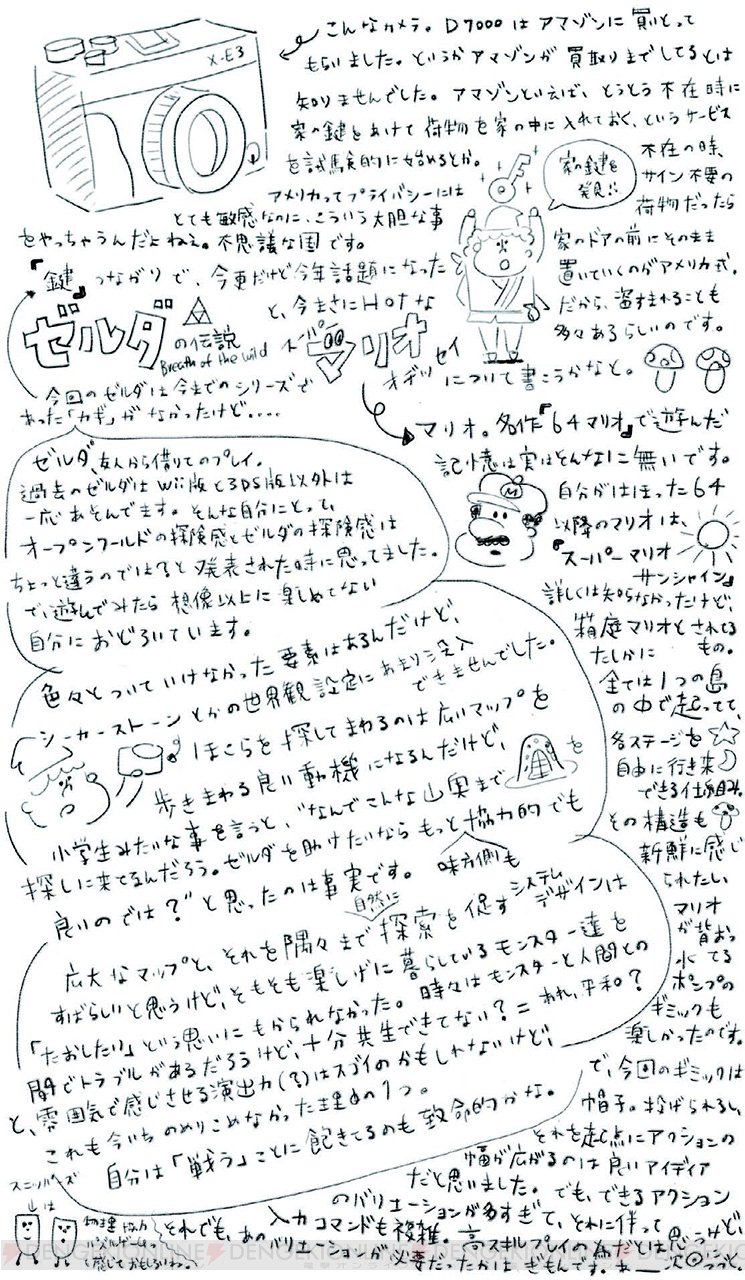 X-E3
こんなカメラ。D7000はアマゾンに買いとって
もらいました。というかアマゾンが買取りまでしてるとは
知りませんでした。アマゾンといえば、とうとう不在時に
家の鍵をあけて荷物を家の中に入れておく、というサービス
を試験的に始めるとか。
アメリカってプライバシーには
とても敏感なのに、こういう大胆な事
をやっちゃうんだよねえ。不思議な国です。
家の鍵を
発見!!
不在の時、
サイン不要の
荷物だったら
家のドアの前にそのまま
置いていくのがアメリカ式。
だから、盗まれることも
多々あるらしいのです。
「鍵」つながりで、今更だけど今年話題になった
ゼルダの伝説
Breath of the wild
と、今まさにHotな
スーパーマリオ
オデッセイ
について書こうかなと。
今回のゼルダは今までのシリーズで
あった「カギ」がなかったけど....
ゼルダ、友人から借りてのプレイ。
過去のゼルダはWii版と3DS版以外は
一応あそんでます。そんな自分にとって、
オープンワールドの探険感とゼルダの探険感は
ちょっと違うのでは?と発表された時に思ってました。
で、遊んでみたら想像以上に楽しめてない
自分におどろいています。
色々とついていけなかった要素はあるんだけど、
シーカーストーンとかの世界観設定にあまり没入
できませんでした。
ほこらを探してまわるのは広いマップを
歩きまわる良い動機になるんだけど、
小学生みたいな事を言うと、"なんでこんな山奥まで
を
探しに来てるんだろう。ゼルダを助けたいならもっと協力的でも
味方側も
良いのでは?"と思ったのは事実です。
広大なマップと、それを隅々まで自然に探索を促すシステム
デザインは
すばらしいと思うけど、そもそも楽しげに暮らしているモンスター達を
「たおしたい」という思いにもかられなかった。時々はモンスターと人間との
間でトラブルがあるだろうけど、十分共生できてない?=あれ、平和?
と、雰囲気で感じさせる演出力(?)はスゴイのかもしれないけど、
これも今いちのめりこめなかった理由の1つ。
自分は「戦う」ことに飽きてるのも致命的かな。
マリオ。名作『64マリオ』で遊んだ
記憶は実はそんなに無いです。
自分がはまった64
以降のマリオは、
『スーパーマリオ
サンシャイン』
詳しくは知らなかったけど、
箱庭マリオとされてる
もの。
たしかに
全ては1つの島
の中で起ってて、
各ステージを
自由に行き来
できる仕組み。
その構造も
新鮮に感じ
られたし、
マリオ
が背おっ
てる
ポンプの
ギミックも
楽しかったのです。
で、今回のギミックは
帽子。投げられるし、
それを起点にアクションの
幅が広がるのは良いアイディア
だと思いました。でも、できるアクション
のバリエーションが多すぎて、それに伴って
入力コマンドも複雑。高スキルプレイの為だとは思うけど、
それでも、あのバリエーションが必要だったかはぎもんです。あー次回につづく。
スニッパーズ
は
物理協力
パズルゲーム
って感じでおもしろいねっ
DENGEKI ONLINE
DENGEKI ONLINE
DENGEKI ONLINE